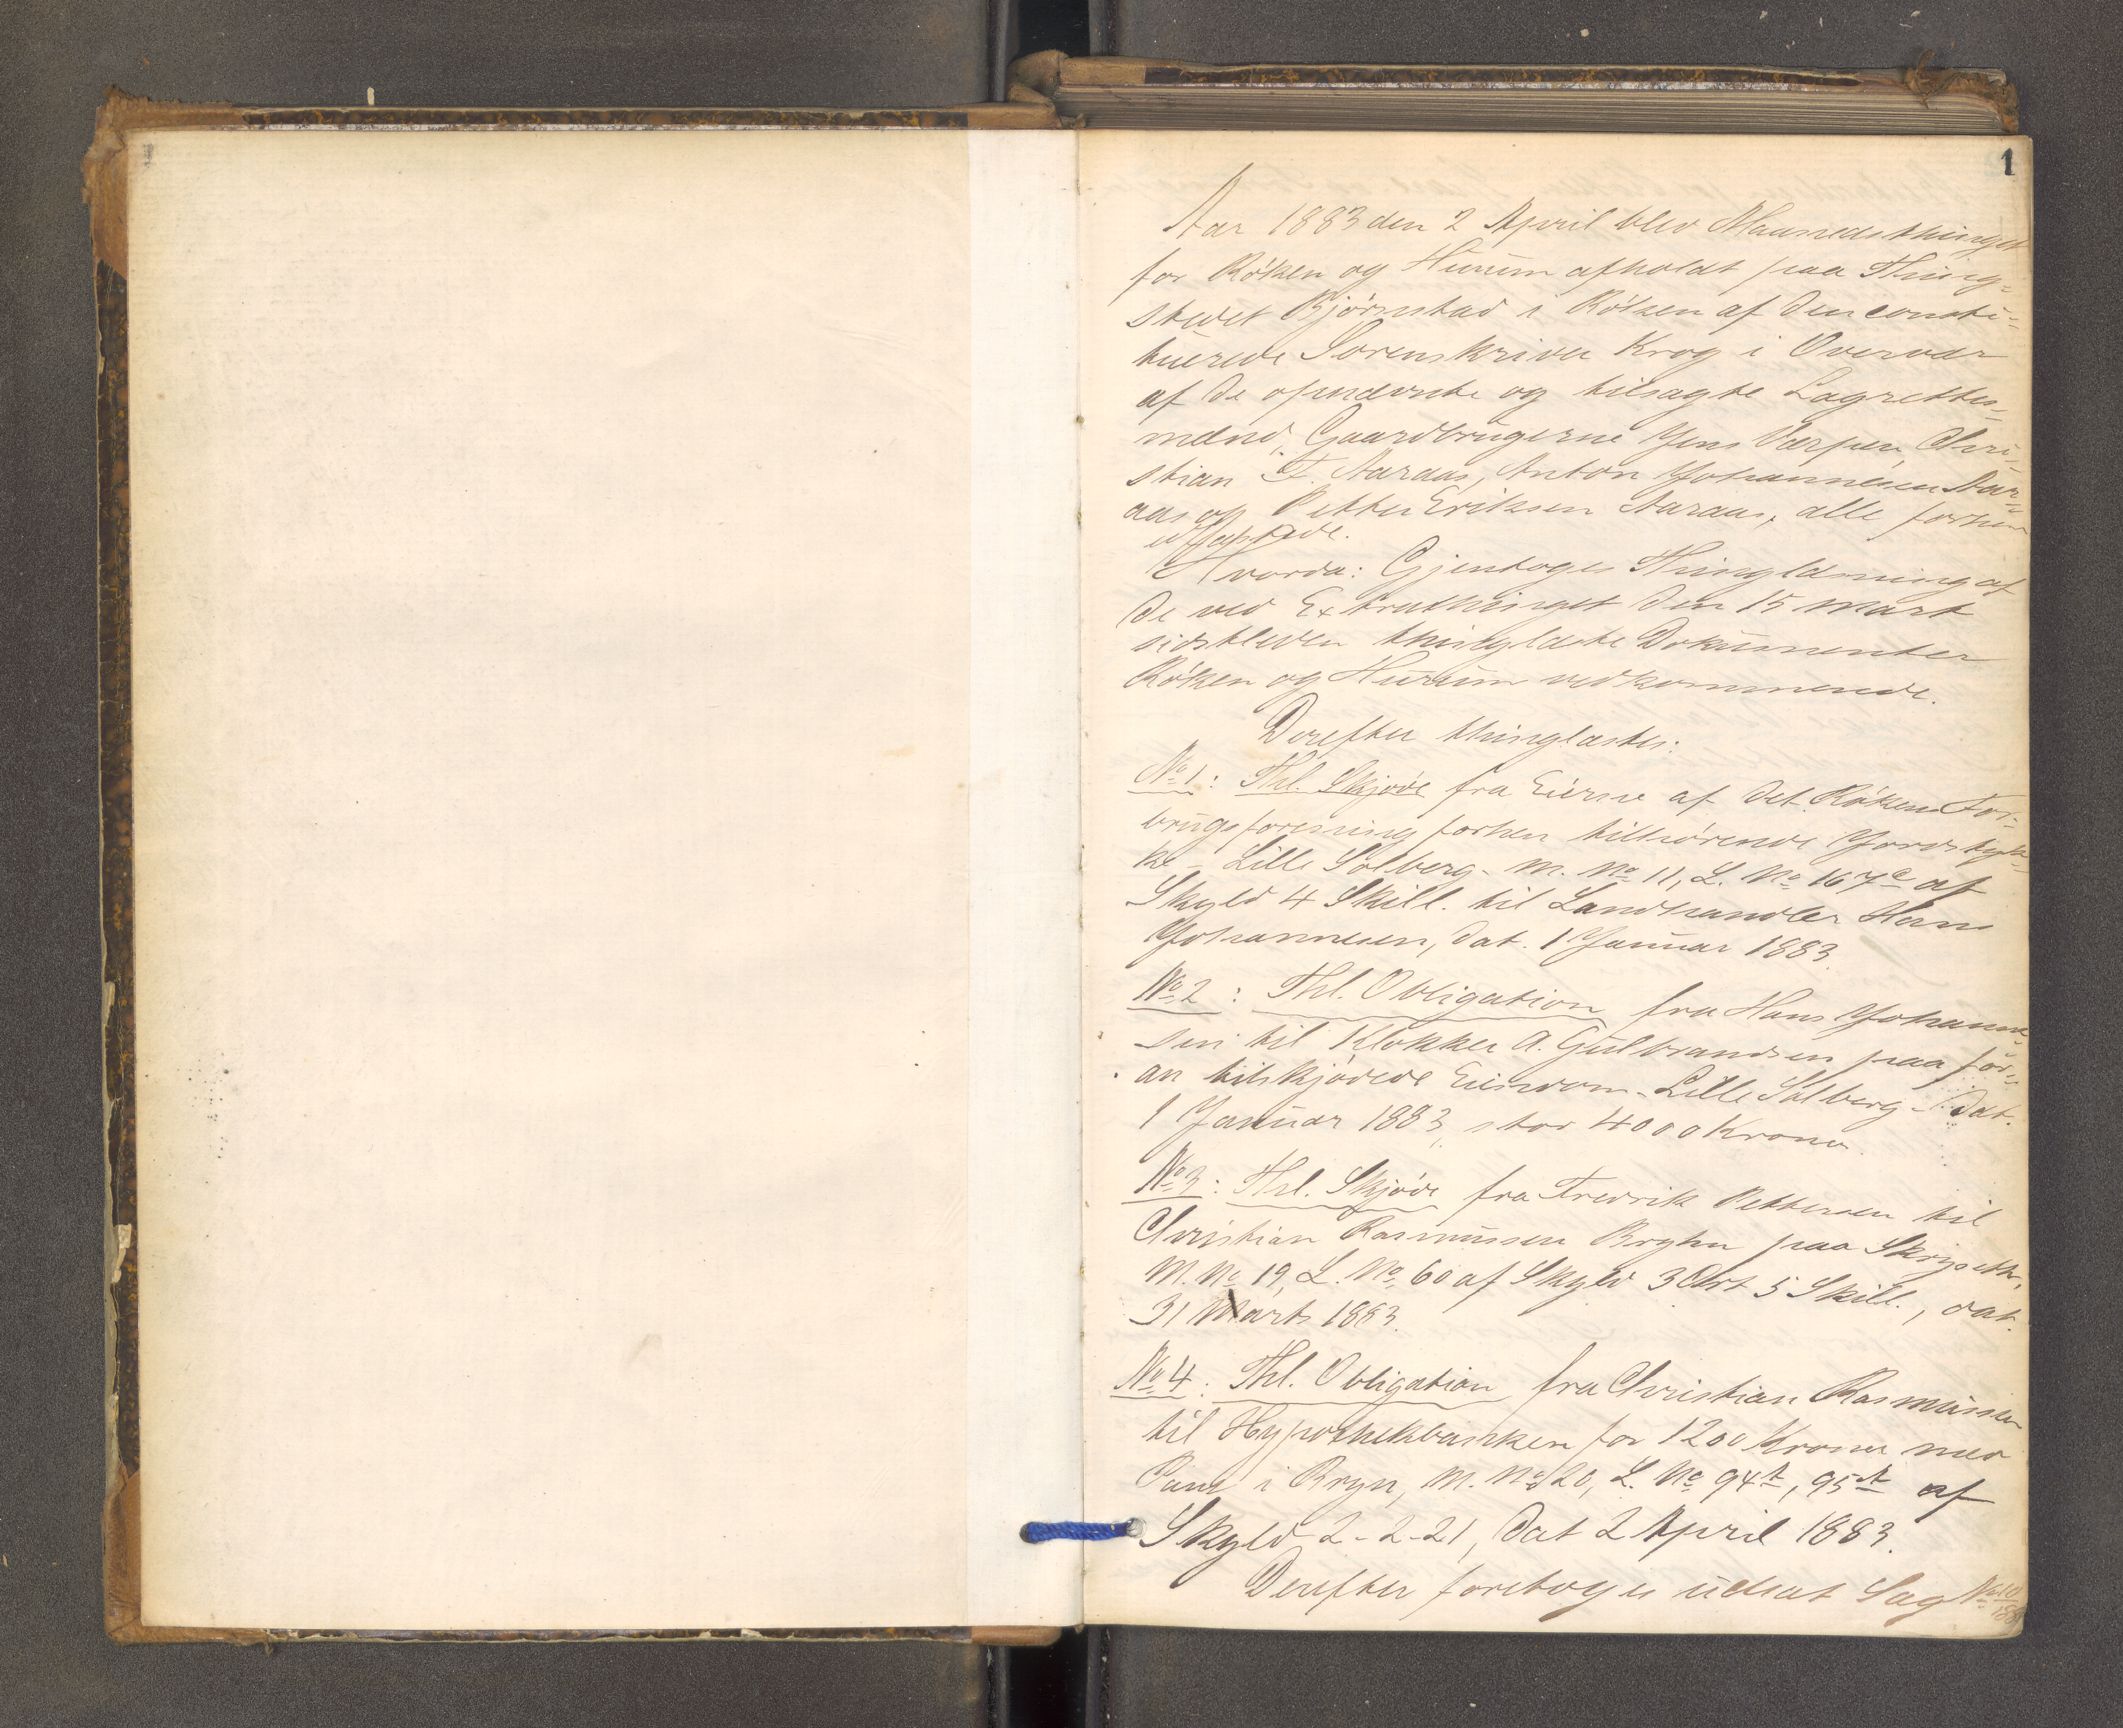 1
Aar 1883 den 2 April blev Maanedsthinget
for Röken og Hurum afholdt paa Thing=
stedet Bjørnstad i Röken af den consti=
tuerede Sorenskriver Krog i Overvær
af de opnævnte og tilsagte Lagrettes=
mænd, Gaardbrugerne Jens Værpen, Chri=
stian F. Aaraas, Anton Johannesen Aar=
aas og Petter Eriksen Aaraas, alle forhen
edfæstede.
Hvorda: Gjentoges Thinglæsning af
de ved Extrathinget den 15 Marts
sidstleden thinglæste Dokumenter
Röken og Hurum vedkommende.
Derefter thinglæstes:
No 1: Thl. Skjøde fra Eierne af det Rökens For=
brugsforening forhen tilhörende Jordstyk=
ke - Lille Solberg - M. No 11, L. No 167c af
Skyld 4 Skill. til Landhandler Hans
Johannesen, dat. 1 Januar 1883.
No 2: Thl. Obligation fra Hans Johanne=
sen til Klokker A. Gulbrandsen paa for=
an tilskjødede Eiendom - Lille Solberg - Dat.
1 Januar 1883, stor 4000 Kroner.
No 3: Thl. Skjøde fra Fredrik Pettersen til
Christian Rasmussen Bryhn paa
M. No 19, L. No 60 af Skyld 3 Ort 5 Skill., dat.
31 Marts 1883.
No 4: Thl. Obligation fra Christian Rasmussen
til Hypothekbanken for 1200 Kroner med
Pant i Bryn, M. No 20, L. No 94a, 95a af
Skyld 2-2-21, Dat 2 April 1883.
Derefter foretoges udsat Sag No